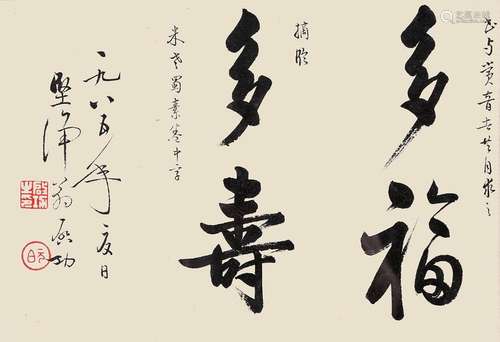 多福
多壽
摘臨
米老蜀素卷中字
一九八五年夏日
堅净翁启功